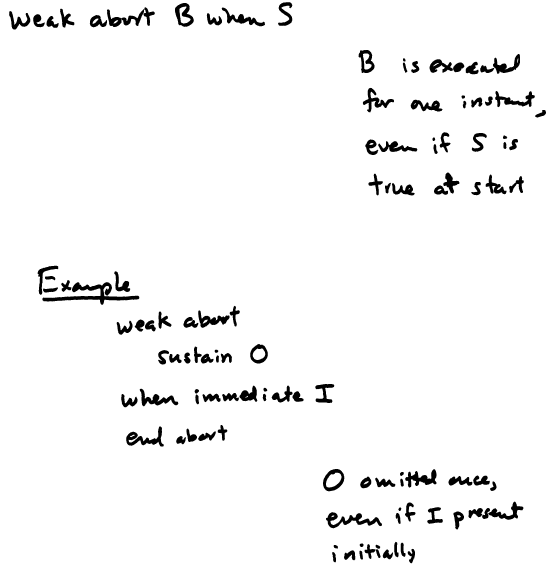 weak abort B when S
B is executed
for one instant,
even if S is
true at start
Example
weak abort
sustain O
when immediate I
end abort
O omitted once,
even if I present
initially